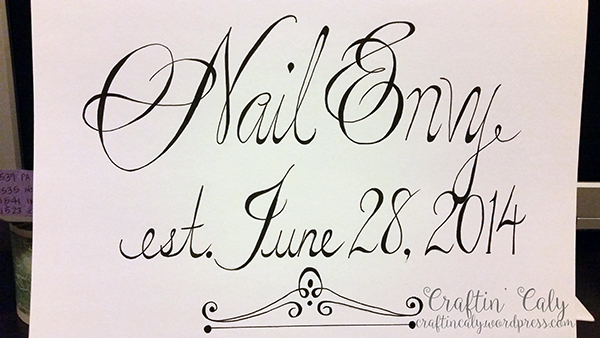 Nail Envy
est. June 28, 2014
Craftin' Caly
craftincaly.wordpress.com